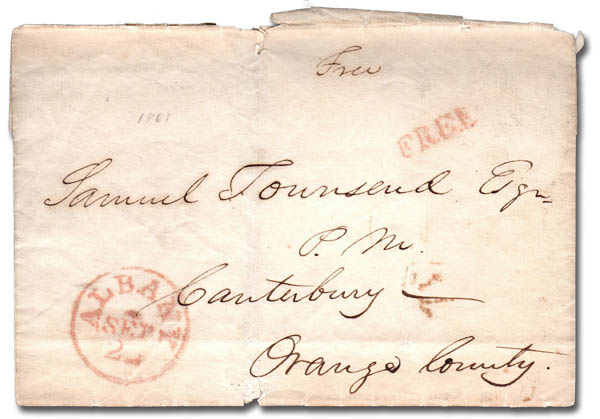 Free
FREE
1861
Samuel Townsend Esqr
P. M.
Canterbury
Orange County.
ALBANY
SEP
2